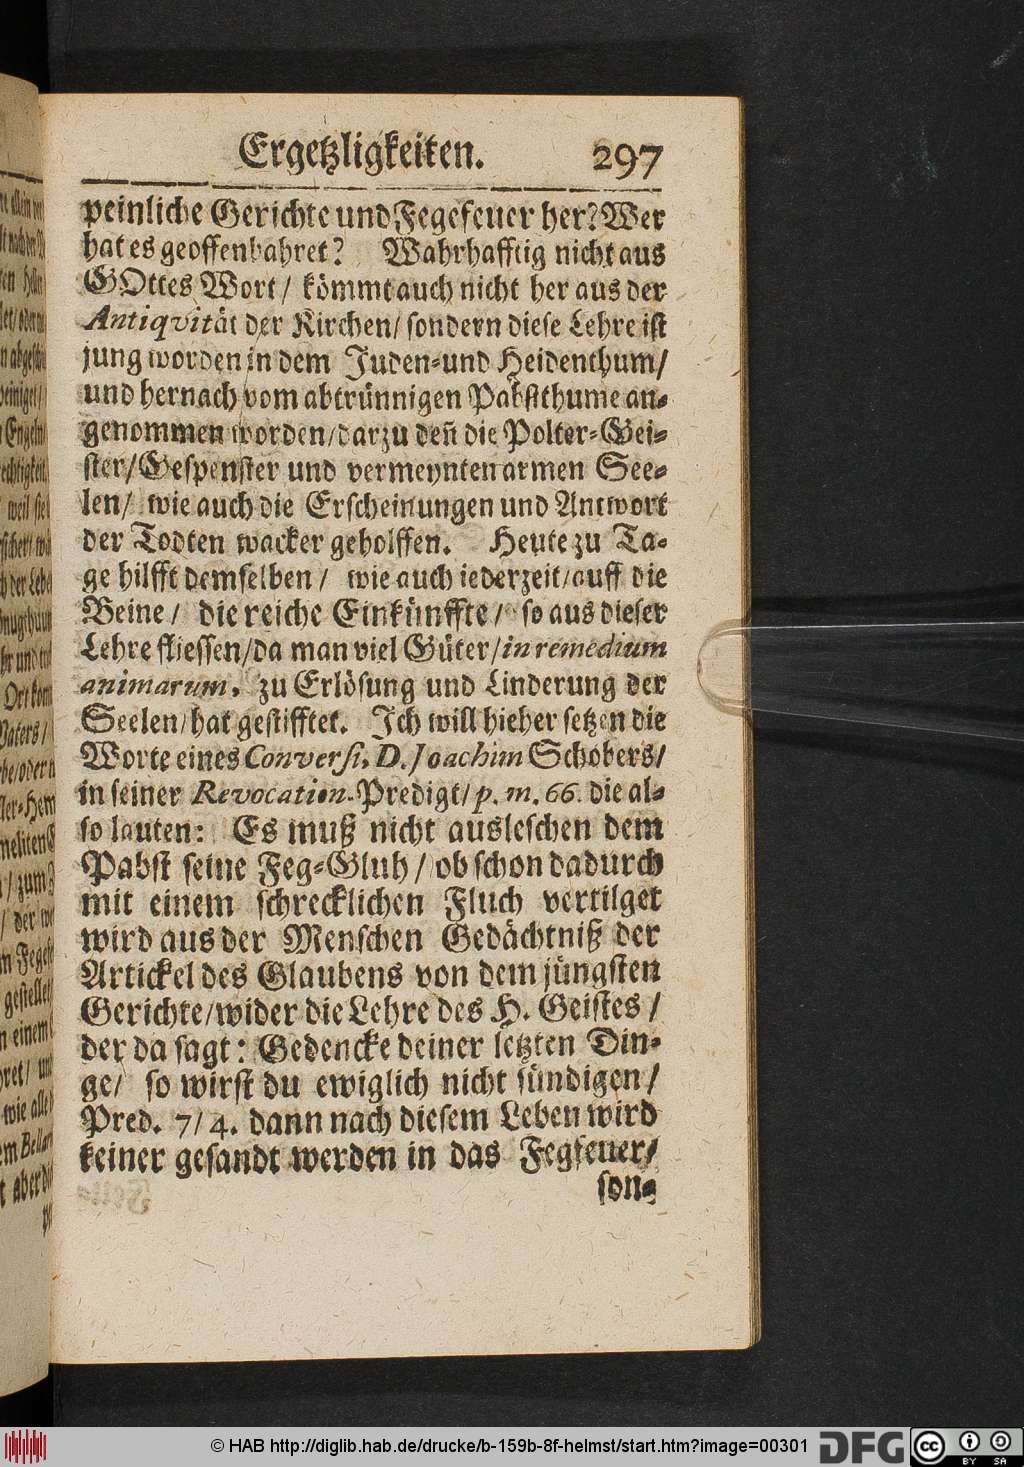 Ergetzligkeiten. 297
peinliche Gerichte und Fegefeuer her? Wer
hat es geoffenbahret? Wahrhafftig nicht aus
GOttes Wort/ kömmt auch nicht her aus der
Antiqvität der Kirchen/ sondern diese Lehre ist
jung worden in dem Juden-und Heidenthum/
und hernach vom abtrünnigen Pabstthume an-
genommen worden/darzu deñ die Polter-Gei-
ster/Gespenster und vermeynten armen See-
len/ wie auch die Erscheinungen und Antwort
der Todten wacker geholffen. Heute zu Ta-
ge hilfft demselben/ wie auch iederzeit/auff die
Beine/ die reiche Einkünffte/ so aus dieser
Lehre fliessen/da man viel Güter/in remedium
animarum, zu Erlösung und Linderung der
Seelen/hat gestifftet. Ich will hieher setzen die
Worte eines Conversi, D. Joachim Schobers/
in seiner Revocation-Predigt/p. m. 66. die al-
so lauten: Es muß nicht ausleschen dem
Pabst seine Feg-Gluh/ob schon dadurch
mit einem schrecklichen Fluch vertilget
wird aus der Menschen Gedächtniß der
Artickel des Glaubens von dem jüngsten
Gerichte/wider die Lehre des H. Geistes/
der da sagt: Gedencke deiner letzten Din-
ge/ so wirst du ewiglich nicht sündigen/
Pred. 7/4. dann nach diesem Leben wird
keiner gesandt werden in das Fegfeuer/
son-
© HAB http://diglib.hab.de/drucke/b-159b-8f-helmst/start.htm?image=00301 DFG CC BY SA